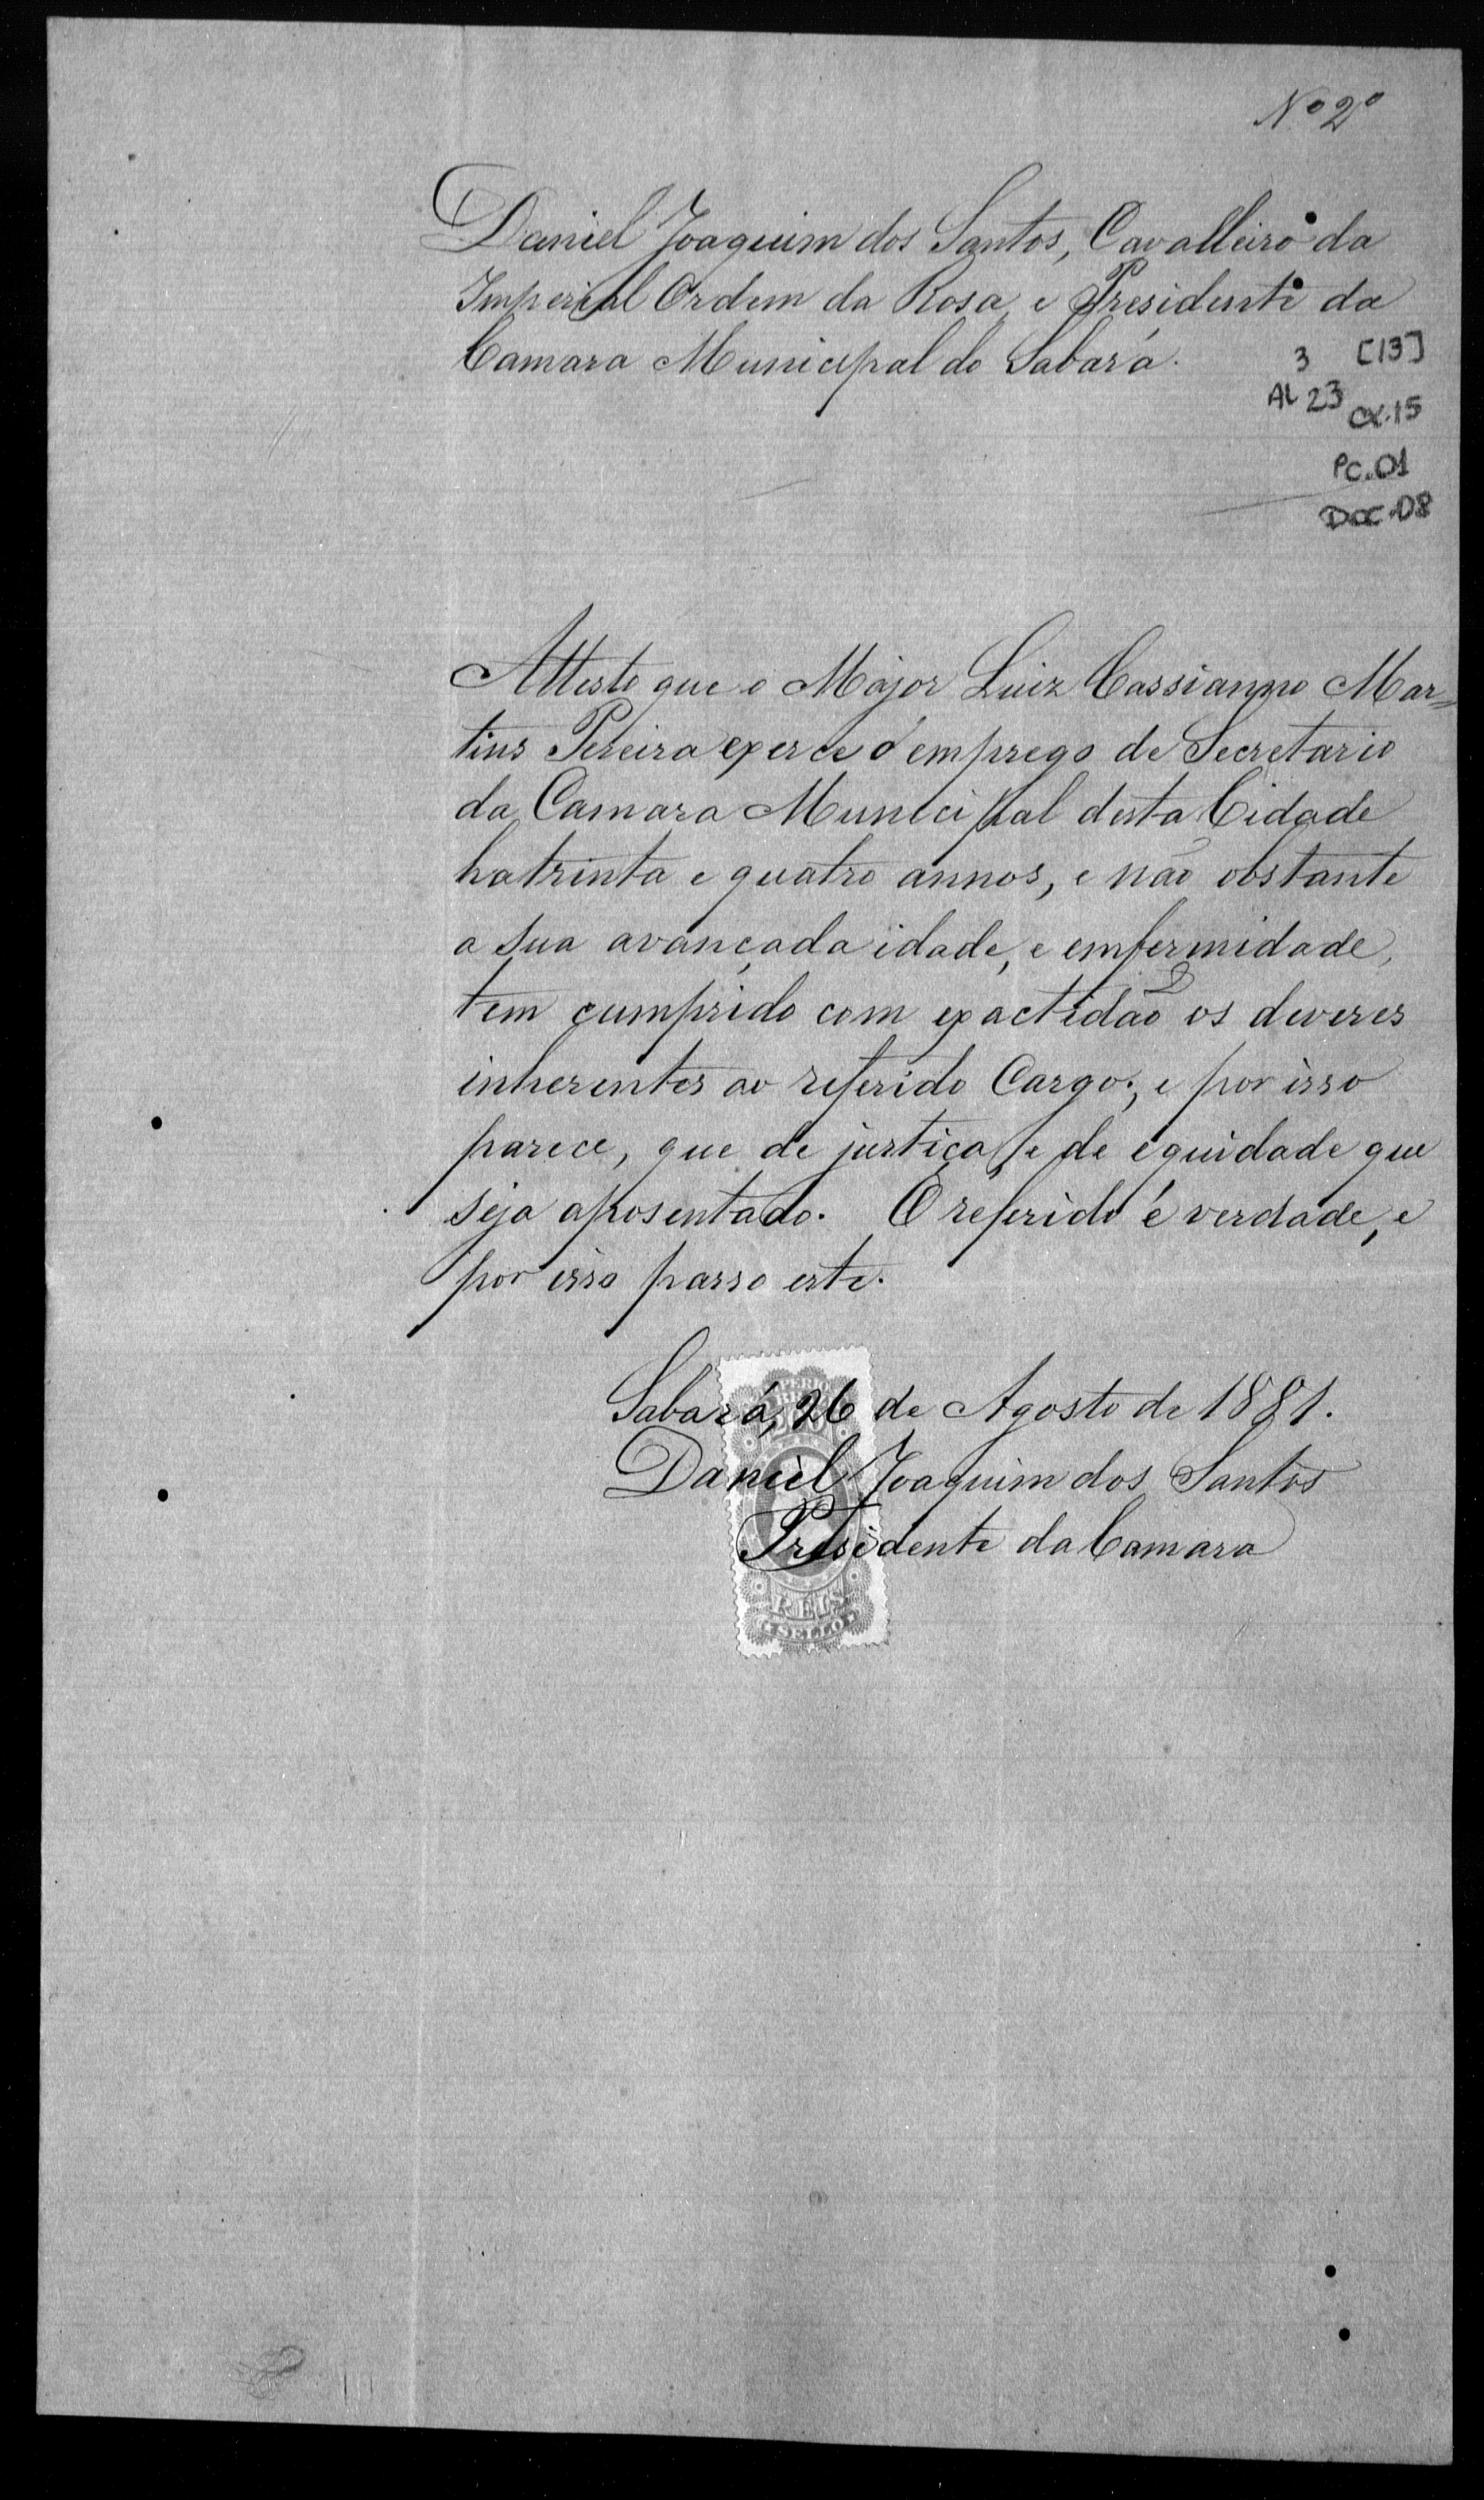 Nº 2º
Daniel Joaquim dos Santos, Cavalleiro da
Imperial Ordem da Rosa, e Presidente da
Camara Municipal do Sabará.
3 [13]
AL 23 CX.15
PC.01
DOC.08
Attesto que o Major Luiz Cassianno Mar=
tins Pereira exerce o emprego de Secretario
da Camara Municipal desta Cidade
ha trinta e quatro annos, e não obstante
a sua avançada idade, e emfermidade,
tem cumprido com exactidão os deveres
inherentes ao referido Cargo; e por isso
parece, que de justiça, e de equidade que
seja aposentado. O referido é verdade, e
por isso passo este.
Sabará, 26 de Agosto de 1881.
Daniel Joaquim dos Santos
Presidente da Camara
IMPERIO
REIS
SELLO